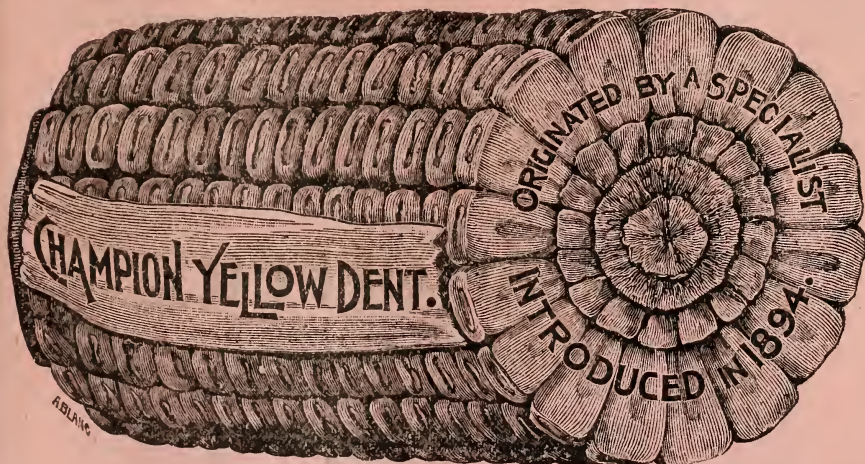 CHAMPION YELLOW DENT.
ORIGINATED BY A SPECIALIST
INTRODUCED IN 1894.
A.BLANC